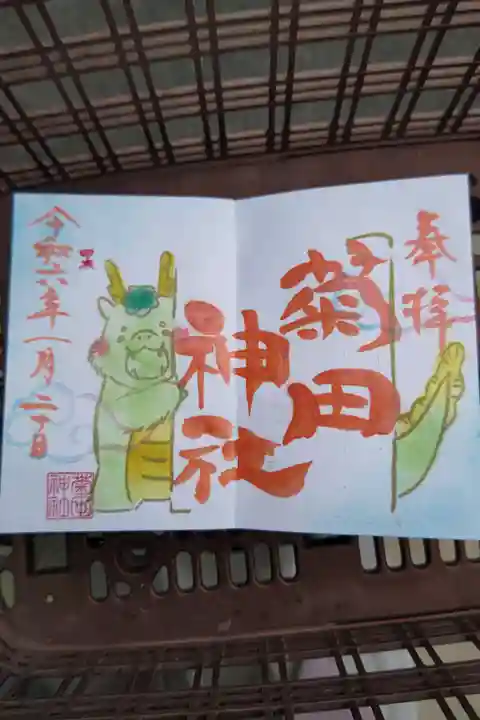 奉拝
菊田
神社
令和六年一月二日
菊田
神社